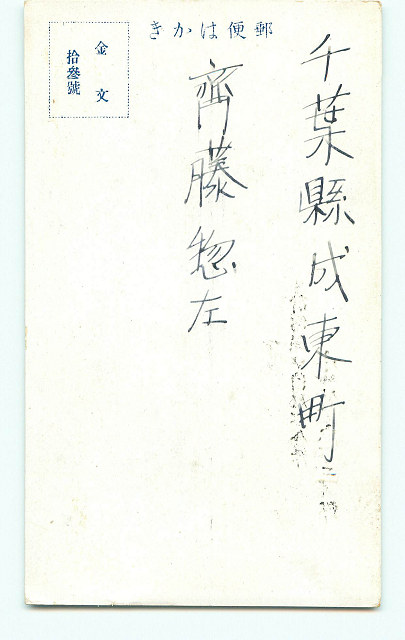 郵便はかき
千葉縣成東町
齊藤惣左
金文
拾叄號